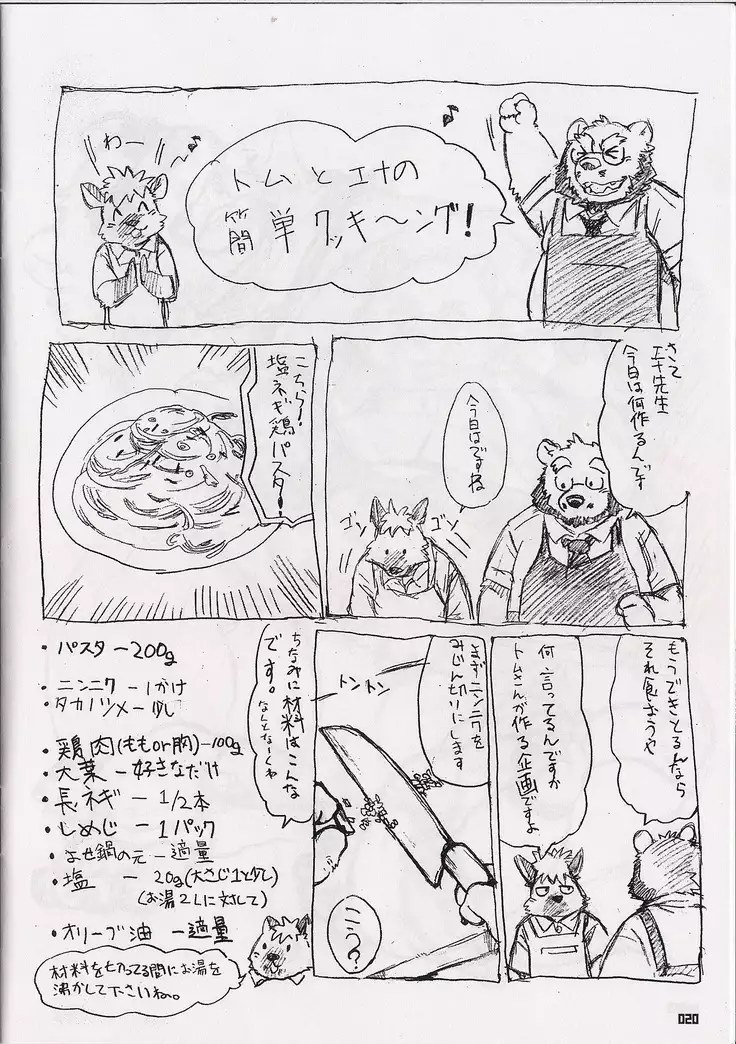 わー
トムとエナの
簡単クッキ〜ング!
さて
エナ先生
今日は何作るんです
今日はですね
ゴソ
ゴソ
こちら!
塩ネギ鶏パスタ!
もうできとるんなら
それ食おうや
何言ってるんですか
トムさんが作る企画ですよ
まずニンニクを
みじん切りにします
トントン
こう?
ちなみに材料はこんな
です。なんとなーくね
・パスタ—200g
・ニンニク—1かけ
・タカノツメ—少し
・鶏肉(ももor胸)—100g
・大葉—好きなだけ
・長ネギ—1/2本
・しめじ—1パック
・よせ鍋の元—適量
・塩—20g(大さじ1と少し)
(お湯2Lに対して)
・オリーブ油—適量
材料を切ってる間にお湯を
沸かして下さいね。
020